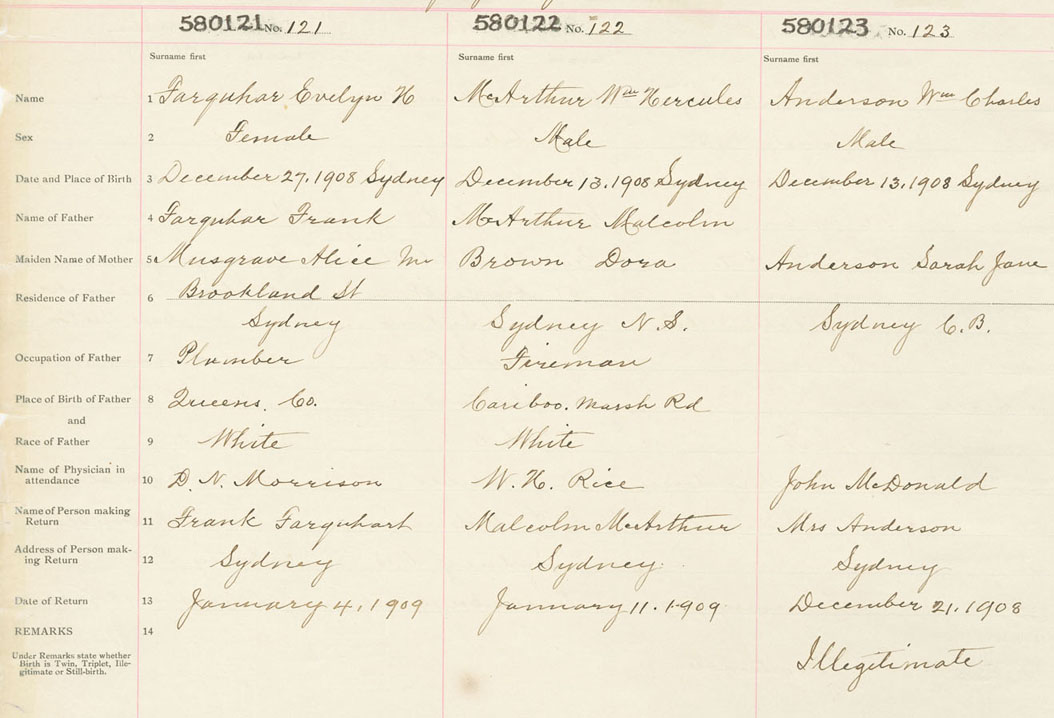 580121 No. 121 580122 No. 122 580123 No. 123
Surname first Surname first Surname first
Name 1 Farquhar Evelyn H McArthur Wm Hercules Anderson Wm Charles
Sex 2 Female Male Male
Date and Place of Birth 3 December 27, 1908 Sydney December 13, 1908 Sydney December 13, 1908 Sydney
Name of Father 4 Farquhar Frank McArthur Malcolm
Maiden Name of Mother 5 Musgrave Alice M Brown Dora Anderson Sarah Jane
Residence of Father 6 Brookland St
Sydney Sydney N.S. Sydney C.B.
Occupation of Father 7 Plumber Fireman
Place of Birth of Father 8 Queens. Co. Cariboo. Marsh Rd
and
Race of Father 9 White White
Name of Physician in
attendance 10 D. N. Morrison W. H. Rice John McDonald
Name of Person making
Return 11 Frank Farquhart Malcolm McArthur Mrs Anderson
Address of Person mak-
ing Return 12 Sydney Sydney Sydney
Date of Return 13 January 4, 1909 January 11. 1909 December 21, 1908
REMARKS 14
Under Remarks state whether
Birth is Twin, Triplet, Ille-
gitimate or Still-birth.
Illegitimate